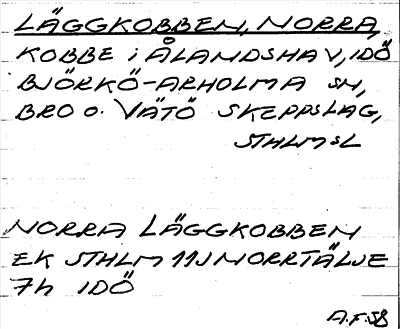 LÄGGKOBBEN, NORRA,
KOBBE i ÅLANDSHAV, IDÖ
BJÖRKÖ-ARHOLMA SN,
BRO O. VÄTÖ SKEPPSLAG,
STHLMSL
NORRA LÄGGKOBBEN
EK STHLM 11J NORRTÄLJE
7h IDÖ
A.F. 58